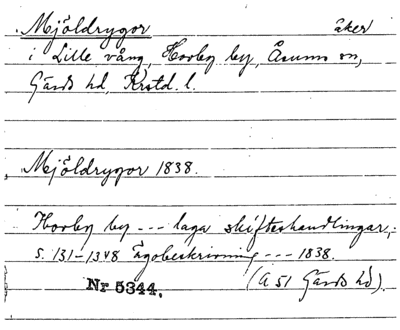 Mjöldrygor åker
i Lille vång, Hovby by, Åsums sn,
Gärds hd, Krstd. l.
Mjöldrygor 1838.
Hovby by --- laga skifteshandlingar,
s. 131-134 8 Ägobeskrivning --- 1838.
Nr 5344. (A 51 Gärds hd).